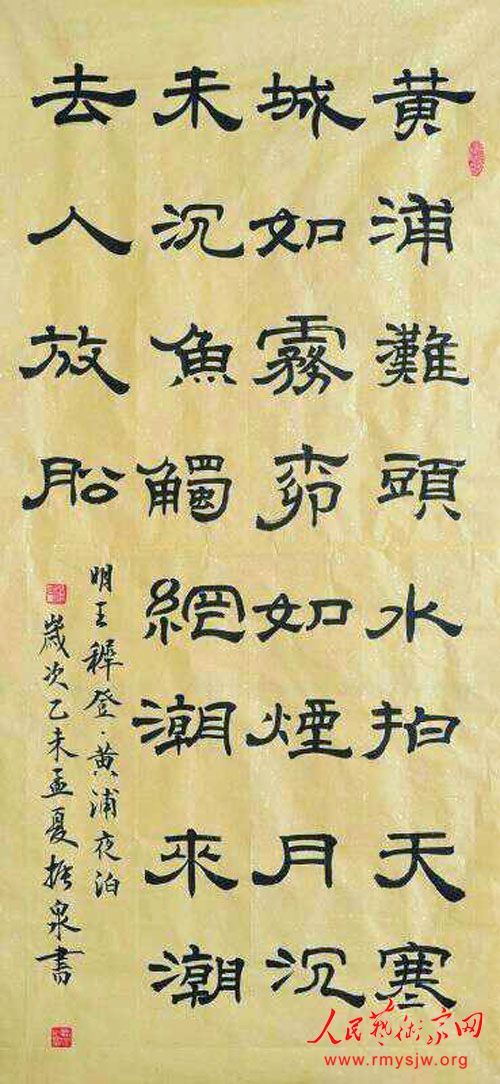 黄浦灘頭水拍天寒
城如霧柳如煙月沉
未沉魚觸網潮來潮
去人放船
明王穉登·黄浦夜泊
歲次乙未孟夏振泉書
人民藝術家网
www.rmysjw.org